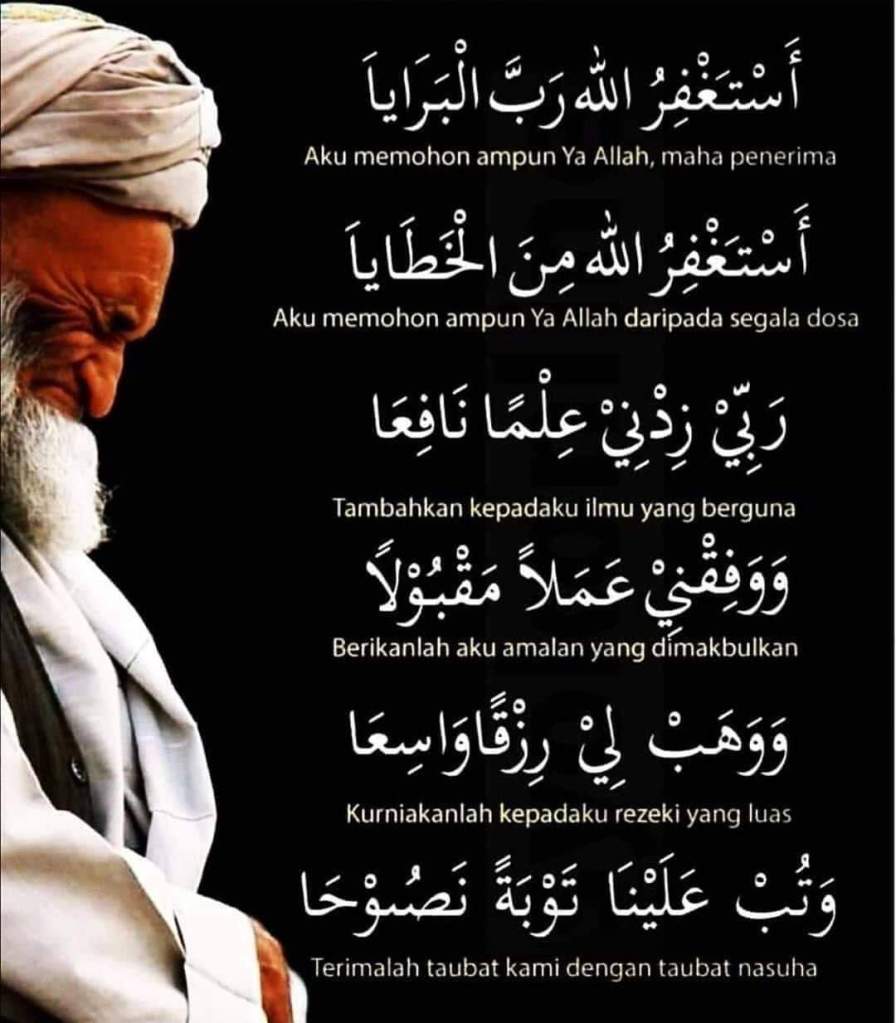 أَسْتَغْفِرُ الله رَبَّ الْبَرَاياَ
Aku memohon ampun Ya Allah, maha penerima
أَسْتَغْفِرُ الله مِنَ الْخَطَاياَ
Aku memohon ampun Ya Allah daripada segala dosa
رَبِّيْ زِدْنِيْ عِلْمًا نَافِعَا
Tambahkan kepadaku ilmu yang berguna
وَوَفِقْنِيْ عَمَلاً مَقْبُوْلاً
Berikanlah aku amalan yang dimakbulkan
وَوَهَبْ لِيْ رِزْقًاوَاسِعَا
Kurniakanlah kepadaku rezeki yang luas
وَتُبْ عَلَيْنَا تَوْبَةً نَصُوْحَا
Terimalah taubat kami dengan taubat nasuha